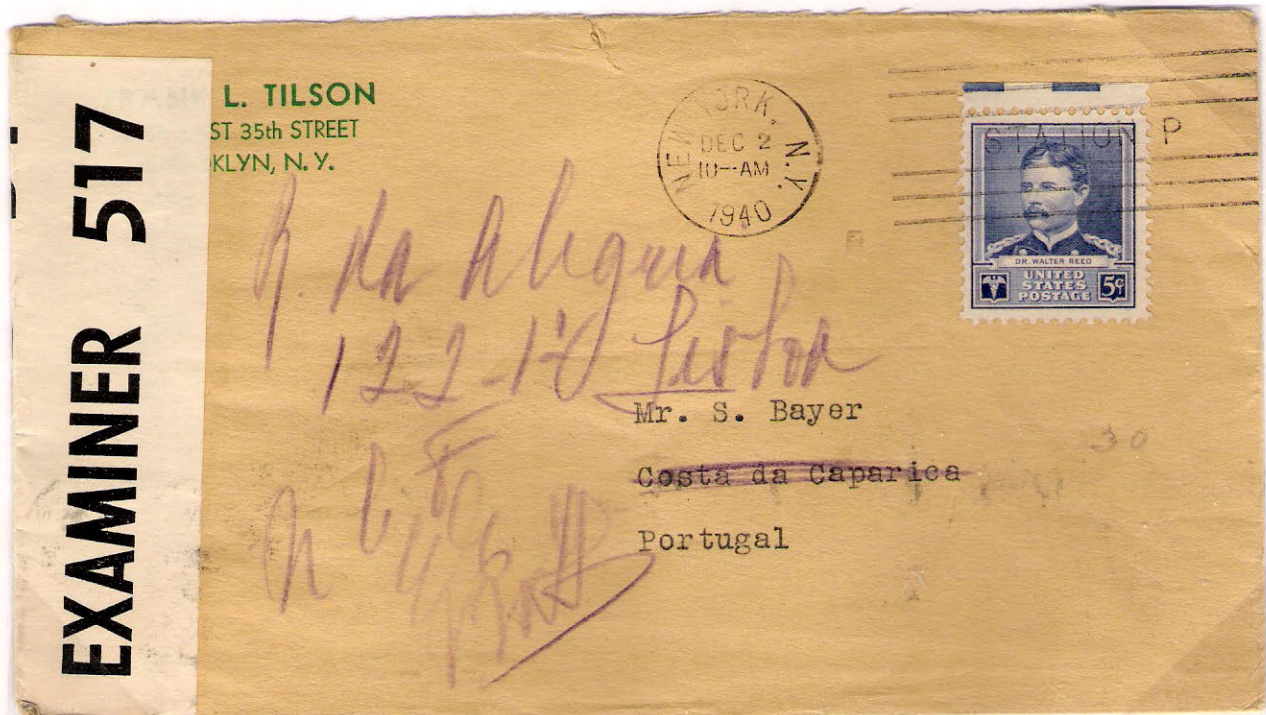 EXAMINER 517
L. TILSON
ST 35th STREET
KLYN, N. Y.
NEW YORK, N.Y.
DEC 2
10--AM
1940
STATION P
DR. WALTER REED
UNITED
STATES
POSTAGE
5¢
R. da Alegria
122-1º Lisboa
Mr. S. Bayer
Costa da Caparica
Portugal
30